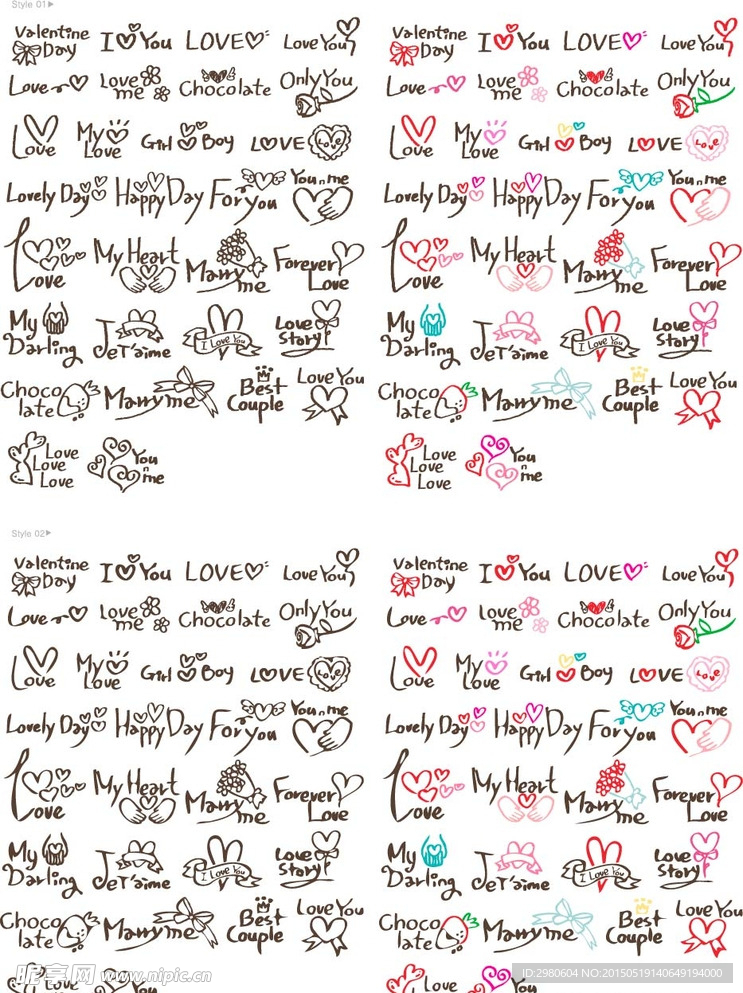 Style 01
Valentine Day I You LOVE Love You Valentine Day I You LOVE Love You
Love Love me Chocolate Only You Love Love me Chocolate Only You
Love My Love Girl Boy LOVE Love Love My Love Girl Boy LOVE Love
Lovely Day Happy Day For you You n me Lovely Day Happy Day For you You n me
Love My Heart Marry me Forever Love Love My Heart Marry me Forever Love
My Darling JeT'aime I Love You Love Story My Darling JeT'aime I Love You Love Story
Chocolate Marry me Best Couple Love You Chocolate Marry me Best Couple Love You
Love Love Love You n me Love Love Love You n me
Style 02
Valentine Day I You LOVE Love You Valentine Day I You LOVE Love You
Love Love me Chocolate Only You Love Love me Chocolate Only You
Love My Love Girl Boy LOVE Love Love My Love Girl Boy LOVE Love
Lovely Day Happy Day For you You n me Lovely Day Happy Day For you You n me
Love My Heart Marry me Forever Love Love My Heart Marry me Forever Love
My Darling JeT'aime I Love You Love Story My Darling JeT'aime I Love You Love Story
Chocolate Marry me Best Couple Love You Chocolate Marry me Best Couple Love You
Love You Love You
昵享网 www.nipic.cn
ID:2980604 NO:20150519140649194000